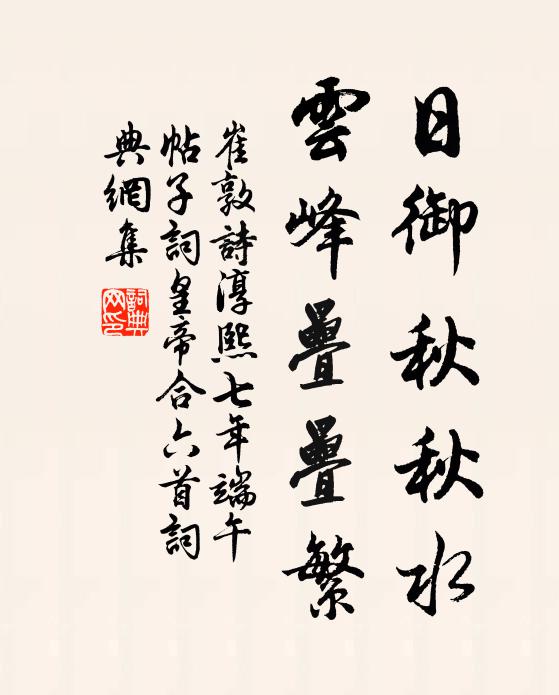 日御秋秋水
雲峰疊疊繁
崔敦詩淳熙七年端午
帖子詞皇帝合六首詞
典網集
詞典
网印